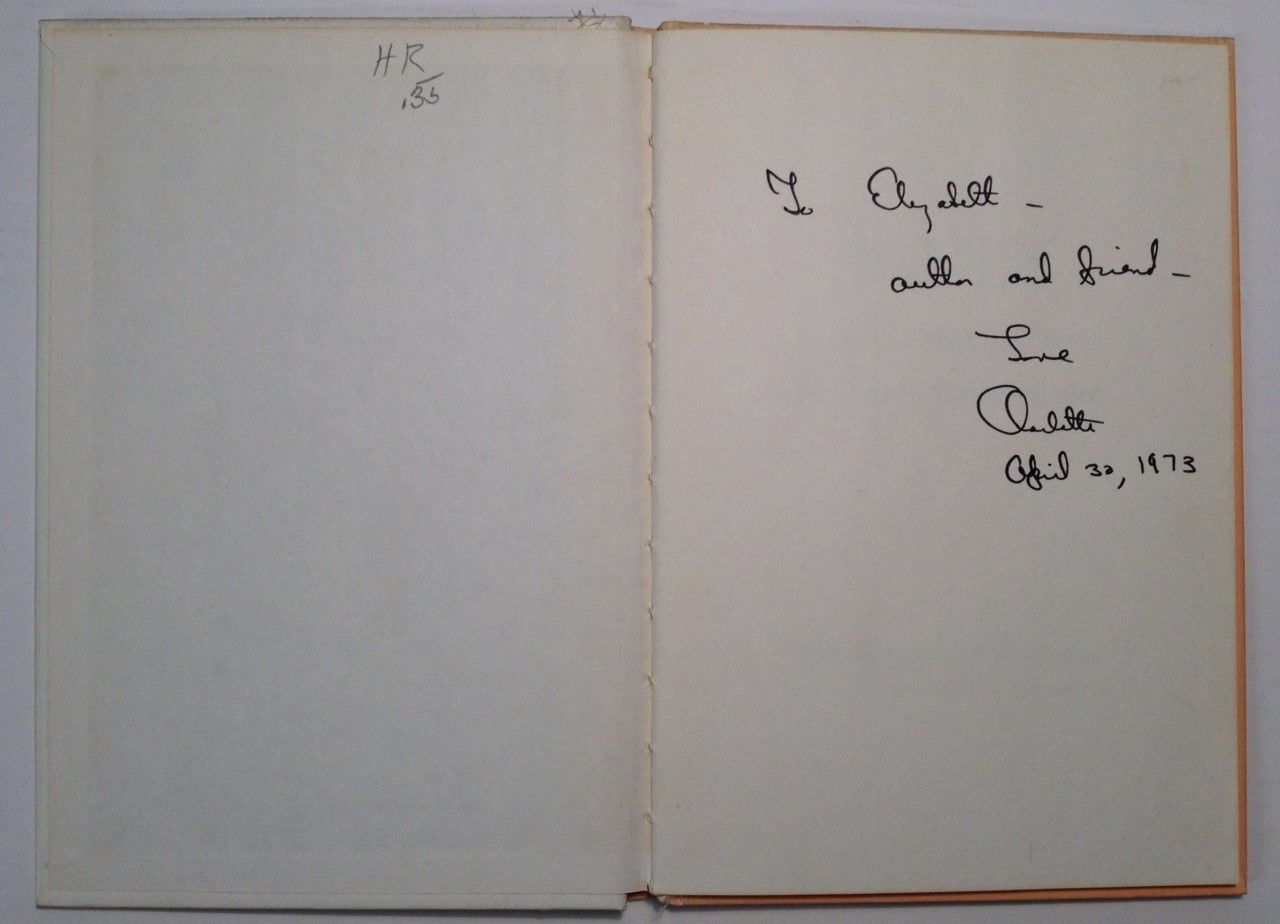 HR
To Elizabeth –
author and friend –
Love
Charlotte
April 30, 1973